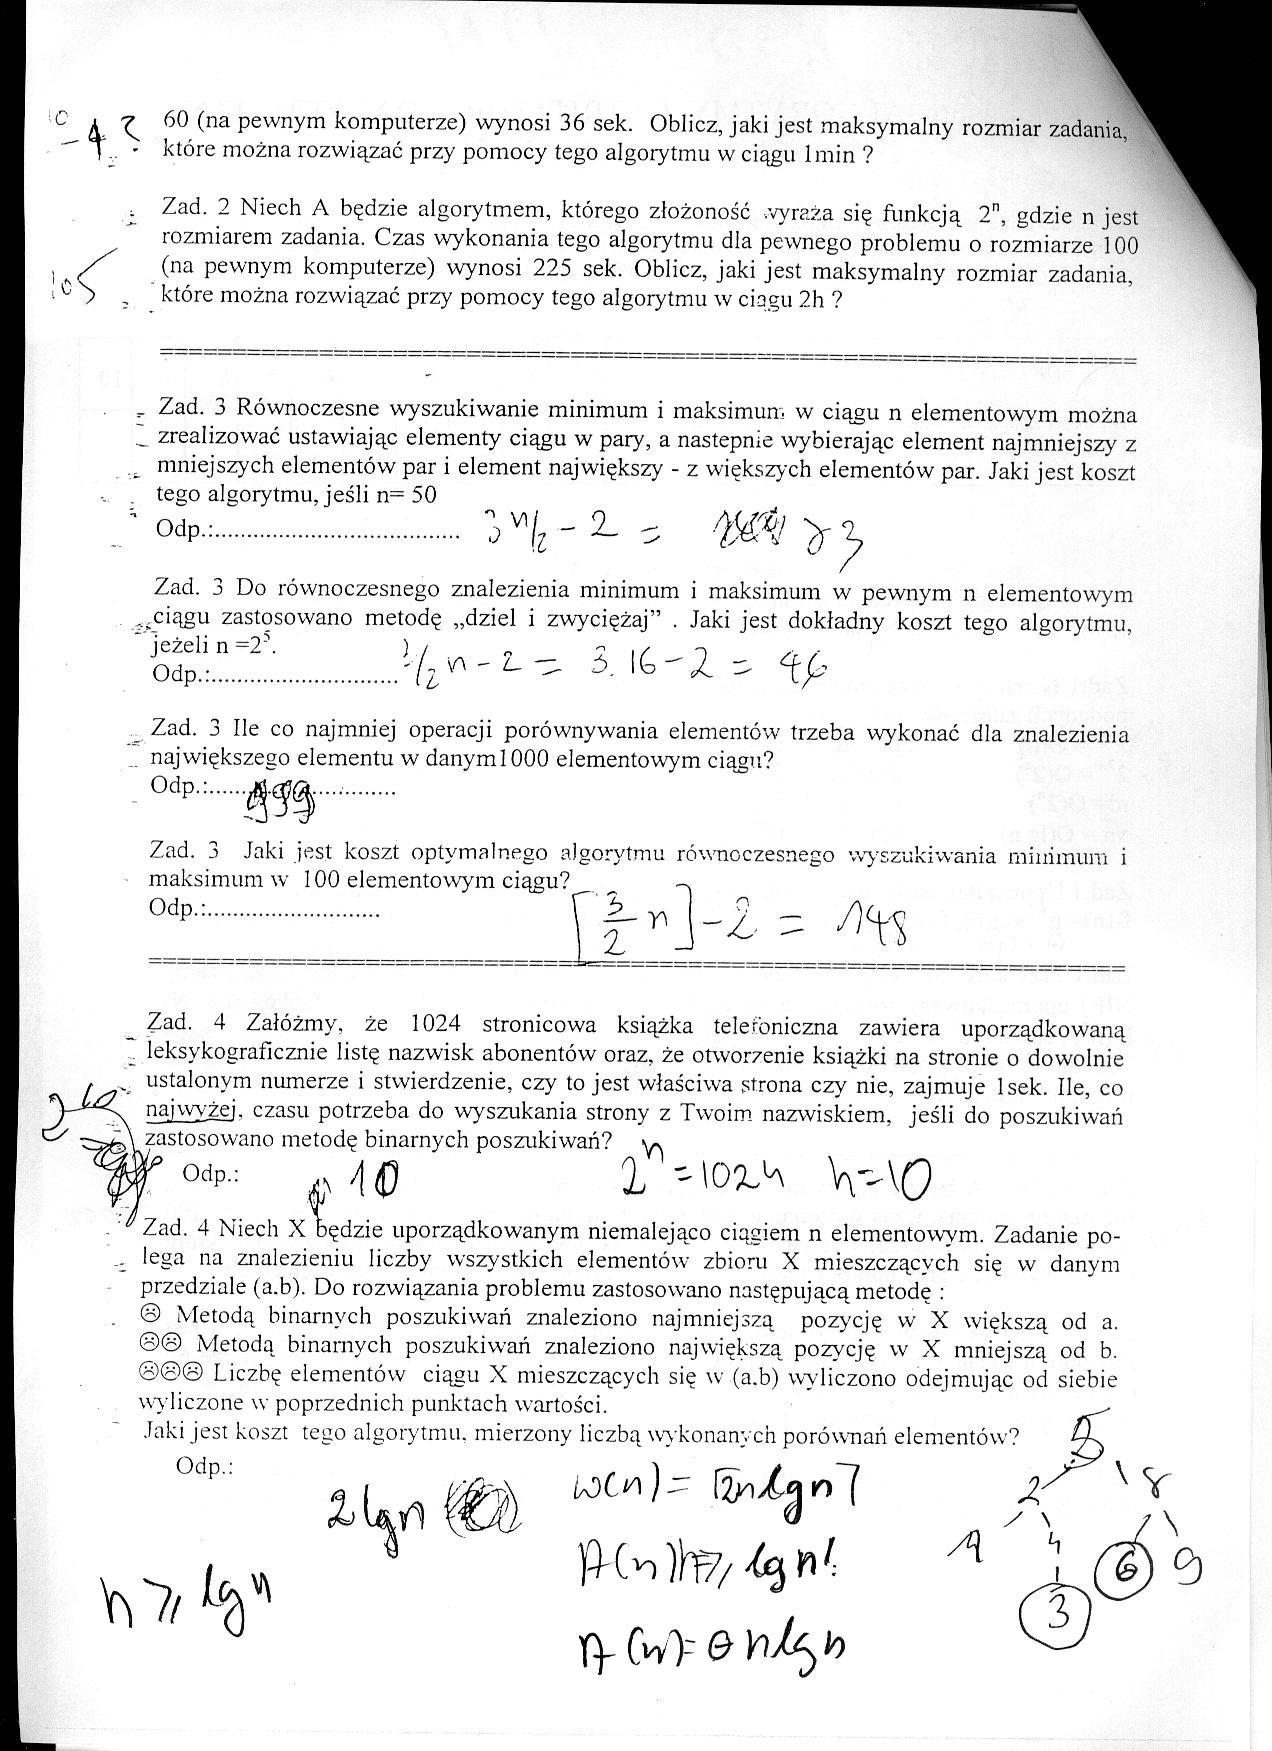 - 4 ? 60 (na pewnym komputerze) wynosi 36 sek. Oblicz, jaki jest maksymalny rozmiar zadania,
które można rozwiązać przy pomocy tego algorytmu w ciągu 1min ?
Zad. 2 Niech A będzie algorytmem, którego złożoność wyraża się funkcją 2ⁿ, gdzie n jest
rozmiarem zadania. Czas wykonania tego algorytmu dla pewnego problemu o rozmiarze 100
(na pewnym komputerze) wynosi 225 sek. Oblicz, jaki jest maksymalny rozmiar zadania,
105 które można rozwiązać przy pomocy tego algorytmu w ciągu 2h ?
Zad. 3 Równoczesne wyszukiwanie minimum i maksimum w ciągu n elementowym można
zrealizować ustawiając elementy ciągu w pary, a nastepnie wybierając element najmniejszy z
mniejszych elementów par i element największy - z większych elementów par. Jaki jest koszt
tego algorytmu, jeśli n= 50
Odp.:...................................... 3 n/2 - 2 = 73
Zad. 3 Do równoczesnego znalezienia minimum i maksimum w pewnym n elementowym
ciągu zastosowano metodę „dziel i zwyciężaj” . Jaki jest dokładny koszt tego algorytmu,
jeżeli n =2⁵.
Odp.:............................. 3/2 n - 2 = 3.16 - 2 = 46
Zad. 3 Ile co najmniej operacji porównywania elementów trzeba wykonać dla znalezienia
największego elementu w danym1000 elementowym ciągu?
Odp.:......999.............
Zad. 3 Jaki jest koszt optymalnego algorytmu równoczesnego wyszukiwania minimum i
maksimum w 100 elementowym ciągu?
Odp.:........................... [3/2 n] - 2 = 148
Zad. 4 Załóżmy, że 1024 stronicowa książka telefoniczna zawiera uporządkowaną
leksykograficznie listę nazwisk abonentów oraz, że otworzenie książki na stronie o dowolnie
ustalonym numerze i stwierdzenie, czy to jest właściwa strona czy nie, zajmuje 1sek. Ile, co
najwyżej, czasu potrzeba do wyszukania strony z Twoim nazwiskiem, jeśli do poszukiwań
zastosowano metodę binarnych poszukiwań?
Odp.: 10 2ⁿ = 1024 n=10
Zad. 4 Niech X będzie uporządkowanym niemalejąco ciągiem n elementowym. Zadanie po-
lega na znalezieniu liczby wszystkich elementów zbioru X mieszczących się w danym
przedziale (a.b). Do rozwiązania problemu zastosowano następującą metodę :
☹ Metodą binarnych poszukiwań znaleziono najmniejszą pozycję w X większą od a.
☹☹ Metodą binarnych poszukiwań znaleziono największą pozycję w X mniejszą od b.
☹☹☹ Liczbę elementów ciągu X mieszczących się w (a.b) wyliczono odejmując od siebie
wyliczone w poprzednich punktach wartości.
Jaki jest koszt tego algorytmu, mierzony liczbą wykonanych porównań elementów?
Odp.:
2lgn
W(n) = ⌈2nlgn⌉
lg n!
A(n) = Θ nlgn
n ≥ lgn
5
2 8
1 4 6 9
3